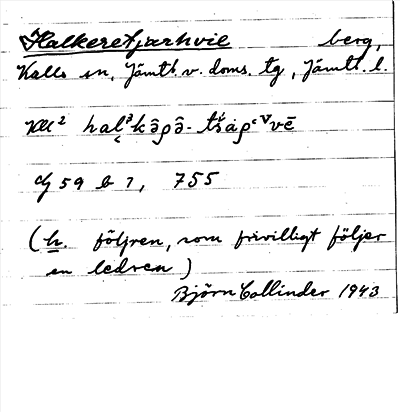 Halkeretjarhvie berg,
Kalls sn, Jämtl. v. doms. tg, Jämtl. l.
59 b 7, 755
(h. följren, som frivilligt följer
en ledren)
Björn Collinder 1943